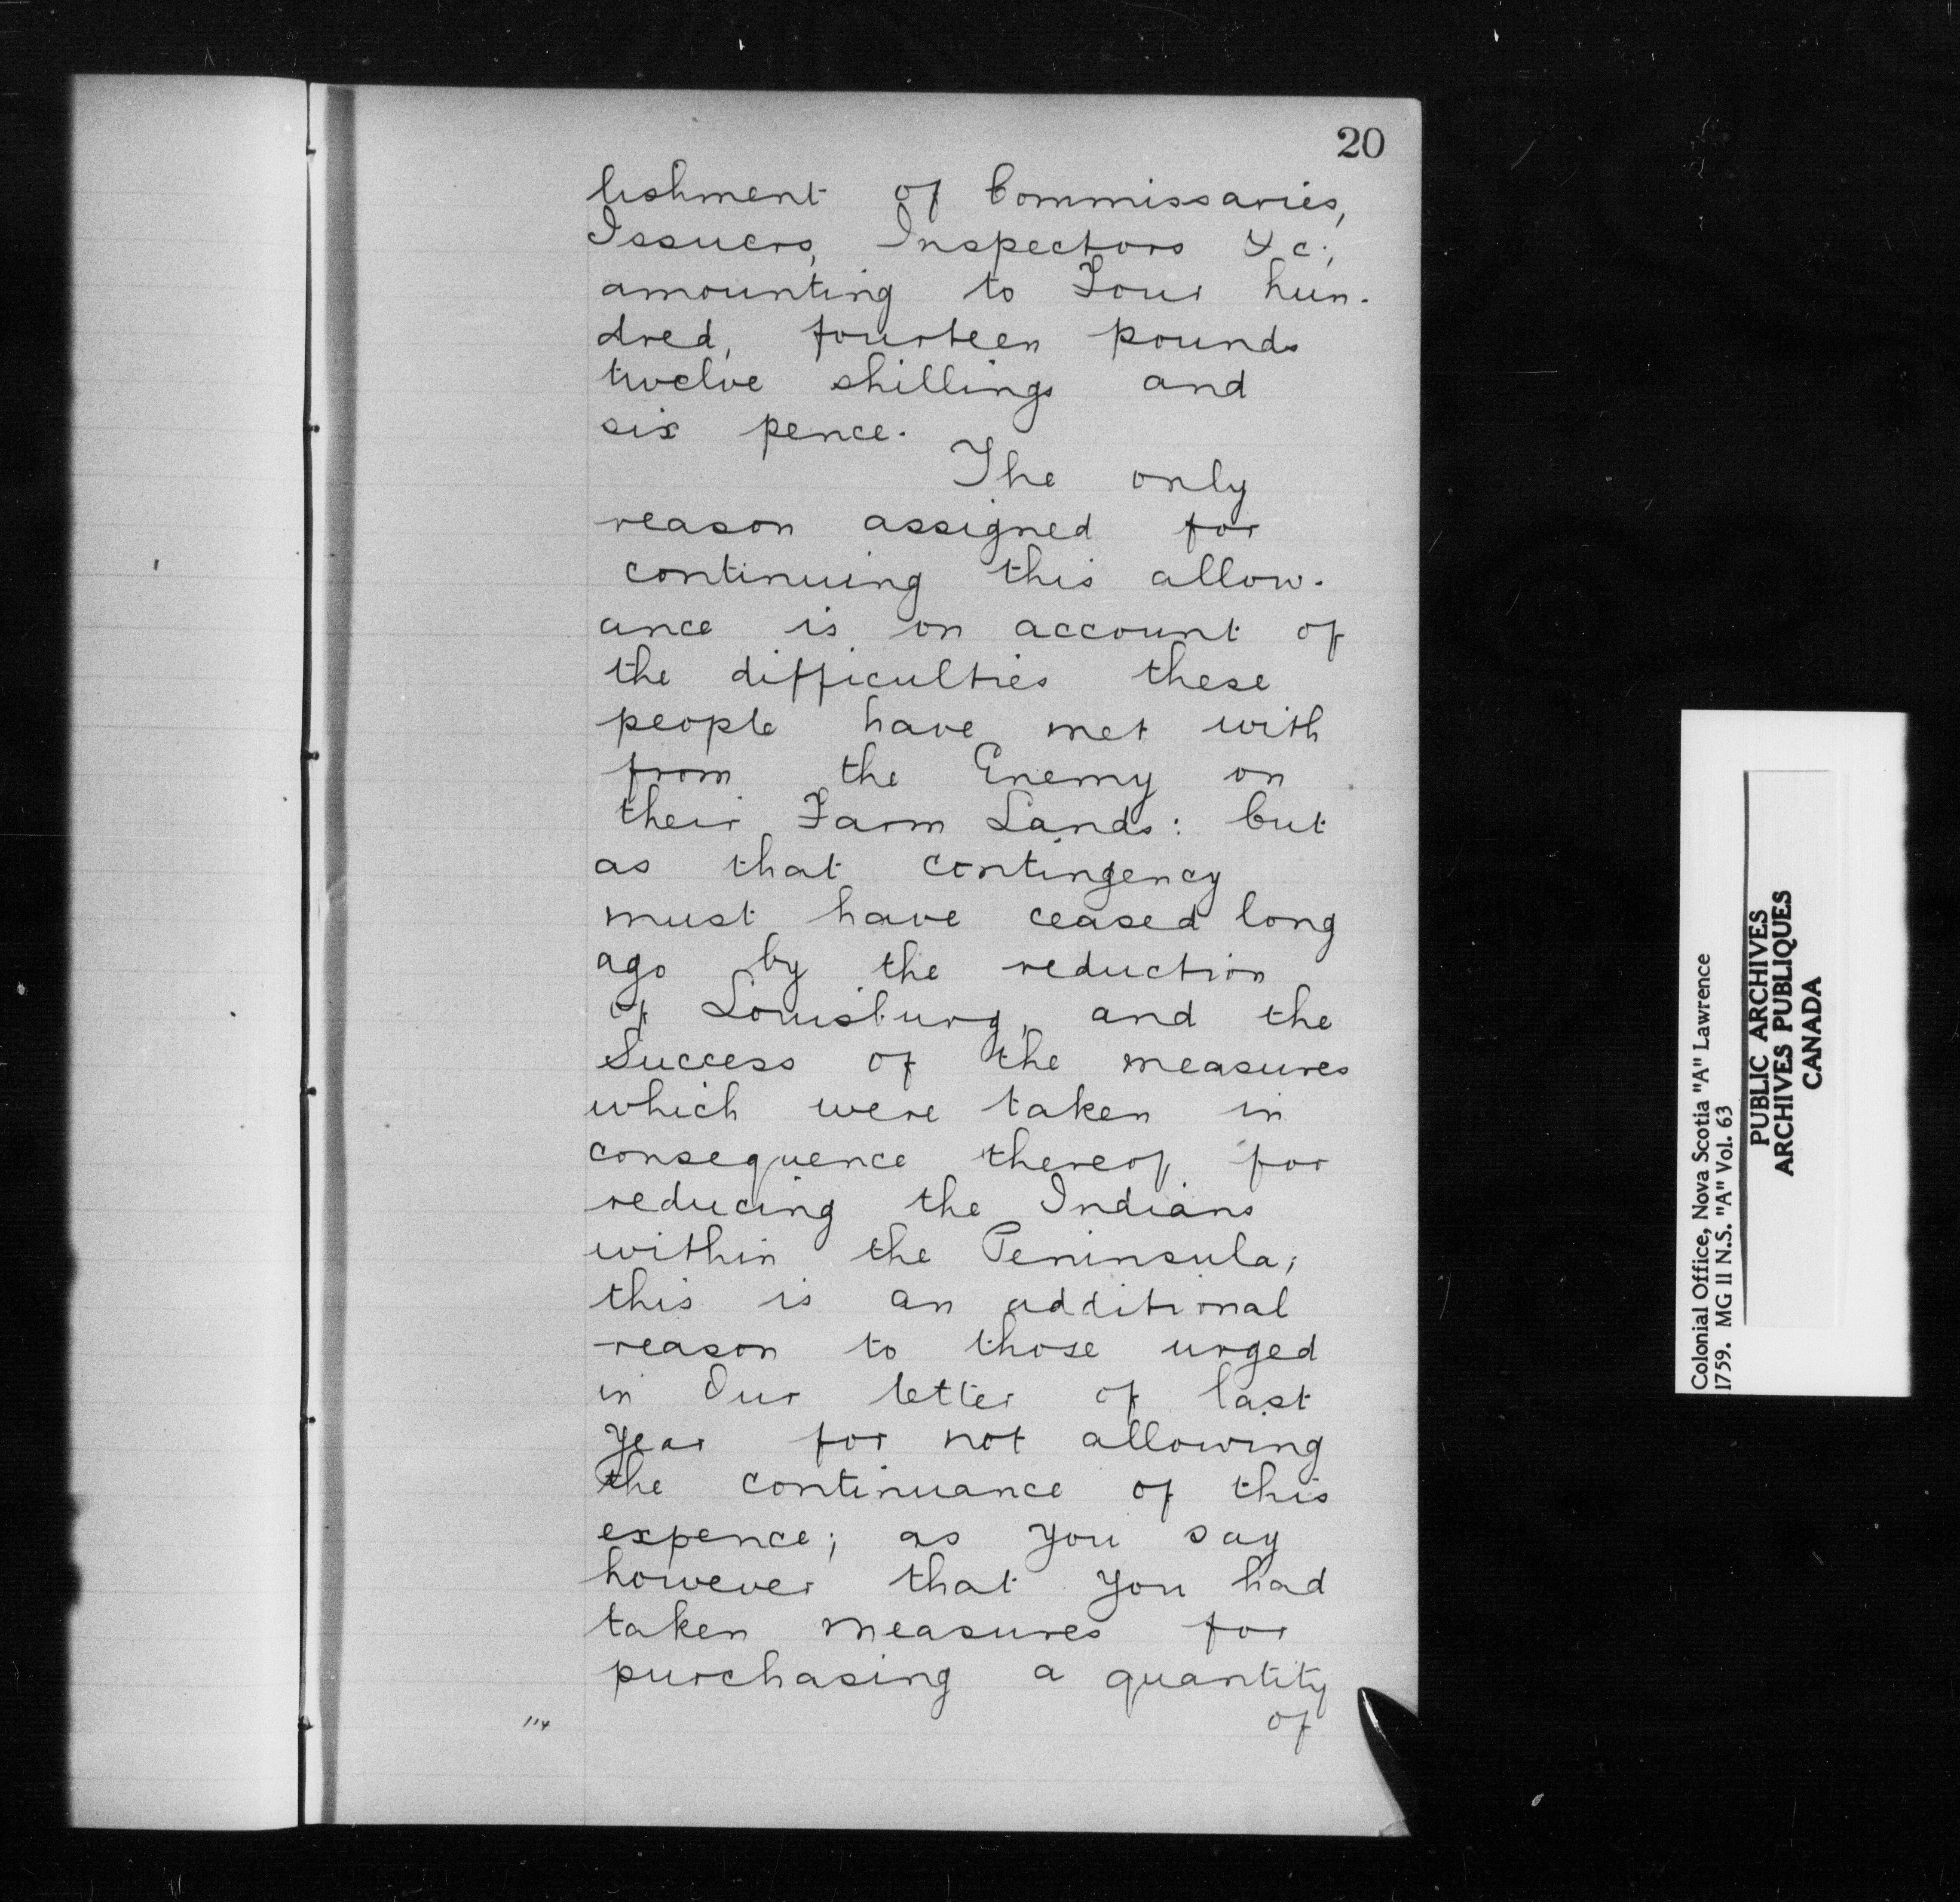 20
lishment of Commissaries,
Issuers, Inspectors &c;
amounting to Four hun-
dred, fourteen pounds
twelve shillings and
six pence.
The only
reason assigned for
continuing this allow-
ance is on account of
the difficulties these
people have met with
from the Enemy on
their Farm Lands: but
as that contingency
must have ceased long
ago by the reduction
of Louisburg, and the
Success of the measures
which were taken in
consequence thereof for
reducing the Indians
within the Peninsula;
this is an additional
reason to those urged
in Our letter of last
Year for not allowing
the continuance of this
expence; as you say
however that you had
taken measures for
purchasing a quantity
of
114
Colonial Office, Nova Scotia "A" Lawrence
1759. MG II N.S. "A" Vol. 63
PUBLIC ARCHIVES
ARCHIVES PUBLIQUES
CANADA